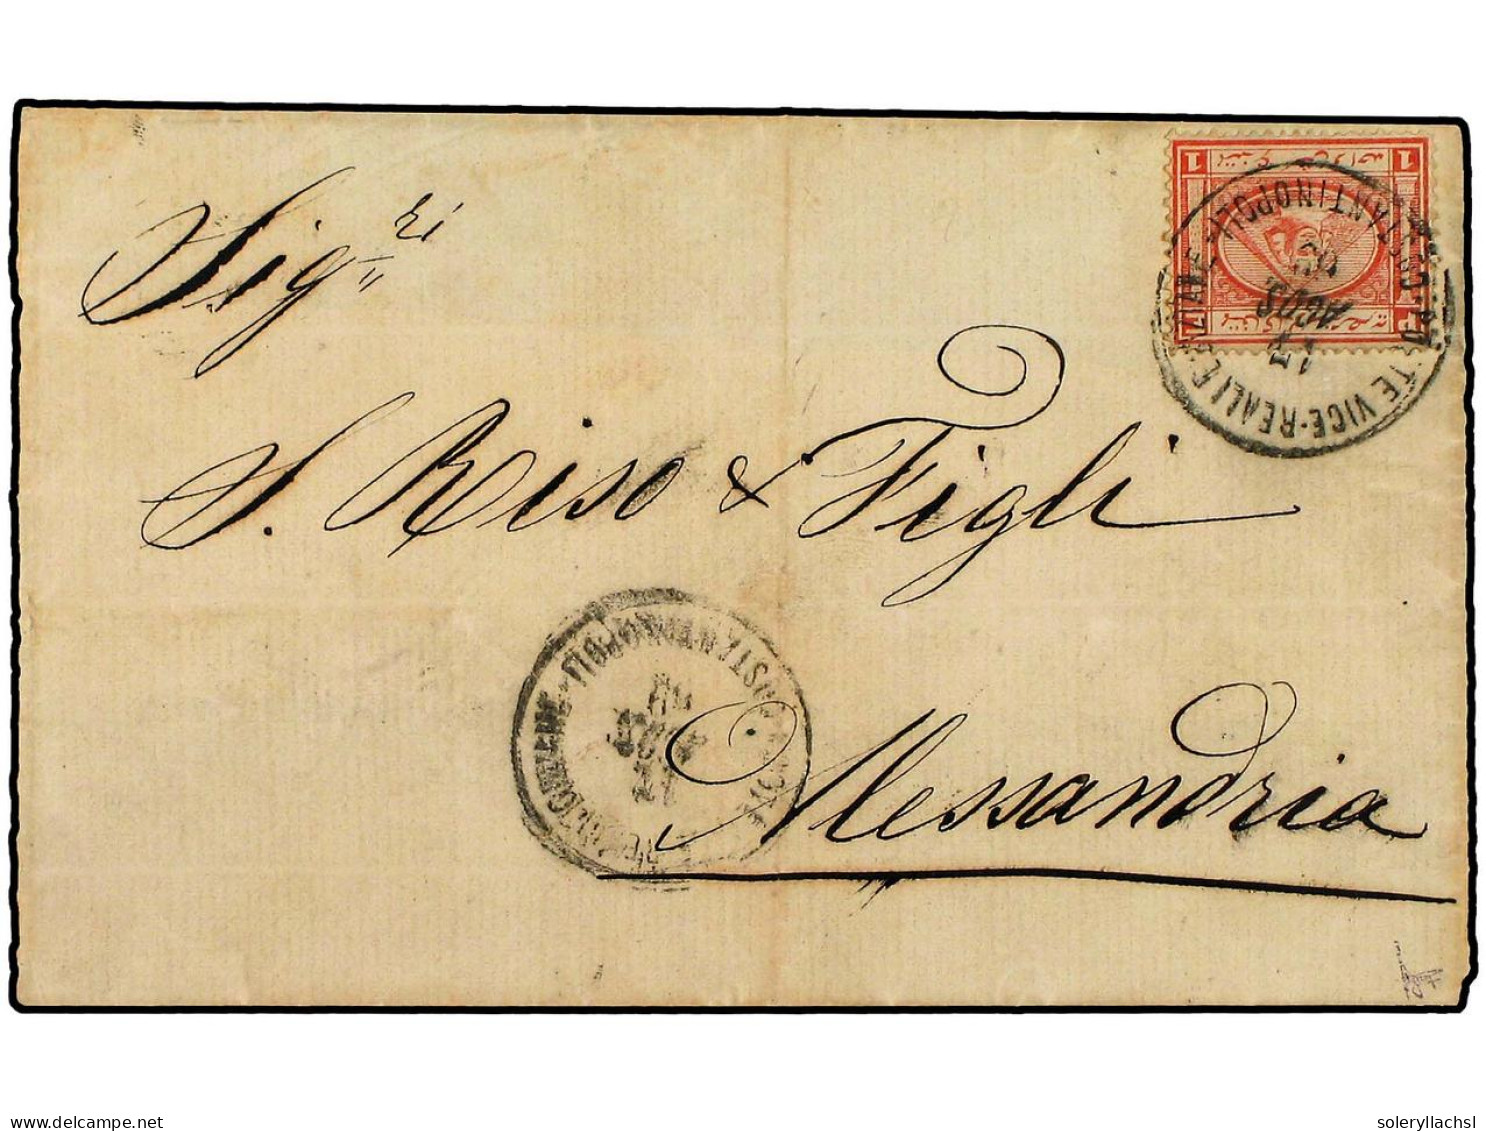 Sig.ri
S. Riso & Figli
Alessandria
1
1
POSTE VICE-REALI EGIZIANE - COSTANTINOPOLI
AGOS
COSTANTINOPOLI
delcampe.net
soleryllachsl